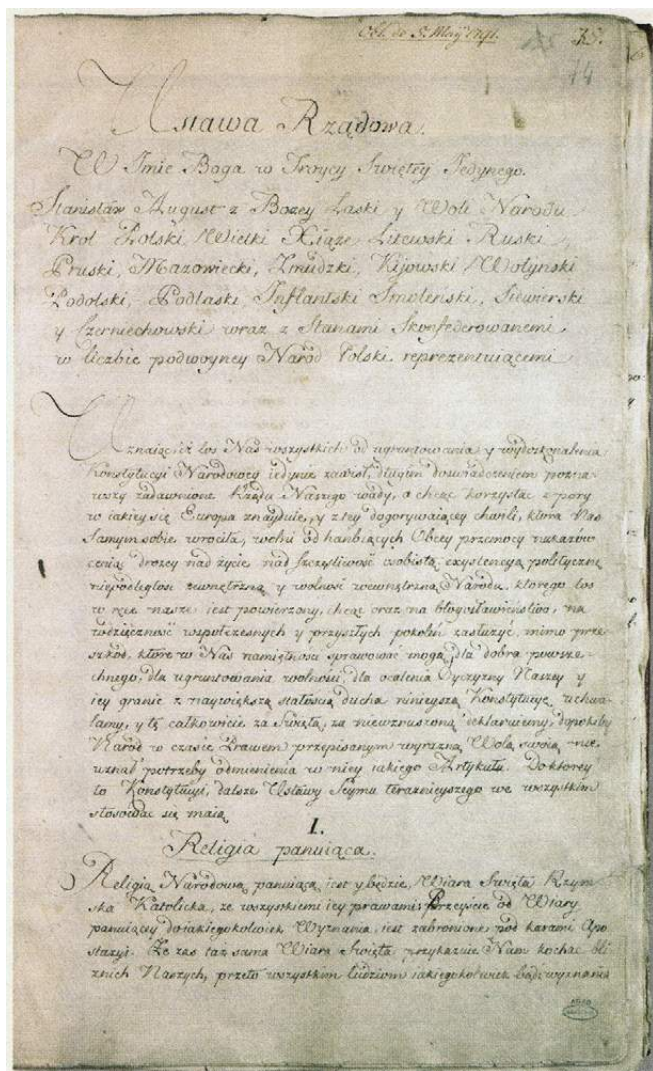 Obl. do 5. Maij 1791.
35.
14
Ustawa Rządowa.
W Imie Boga w Troycy Swiętey Jedynego.
Stanisław August z Bozey Łaski y Woli Narodu
Krol Polski, Wielki Xiąze Litewski Ruski,
Pruski, Mazowiecki, Zmudzki, Kijowski, Wołynski
Podolski, Podlaski, Inflantski Smolenski, Siewierski
y Czerniechowski wraz z Stanami Skonfederowanemi
w liczbie podwoyney Naród Polski reprezentuiącemi
Uznaiąc, iż los Nas wszystkich od ugruntowania y wydoskonalenia
Konstytucyi Narodowey iedynie zawisł, długim doswiadczeniem pozna-
wszy zadawnione Rządu Naszego wady, a chcąc korzystac z pory
w iakiey się Europa znayduie, y z tey dogorywaiącey chwili, która Nas
samym sobie wrociła, wolni od hanbiących Obcey przemocy nakazów
ceniąc drozey nad życie, nad szczęsliwość osobistą, exystencyą polityczną
niepodległosc zewnętrzną y wolnosc wewnętrzną Narodu, ktorego los
w ręce nasze iest powierzony, chcąc oraz na błogosławieństwo, na
wdzięcznosc wspołczesnych y przyszłych pokolen zasłużyć, mimo prze-
szkod, które w Nas namiętnosci sprawować mogą, dla dobra powsze-
chnego, dla ugruntowania wolnosci, dla ocalenia Oyczyzny Naszey y
iey granic z naywiększą stałoscią ducha ninieyszą Konstytucyę uchwa-
lamy, y tę całkowicie za swiętą, za niewzruszoną deklaruiemy, dopokiby
Naród w czasie Prawem przepisanym wyrazną Wolą swoią nie
uznał potrzeby odmienienia w niey iakiego Artykułu. Do ktorey
to Konstytucyi, dalsze Ustawy Seymu teraznieyszego we wszystkim
stosować się maią
I.
Religia panuiąca.
Religią Narodową panuiącą iest y będzie, Wiara Swięta Rzym-
ska Katolicka, ze wszystkiemi iey prawami; Przeyscie od Wiary
panuiącey do iakiegokolwiek Wyznania, iest zabronione pod karami Apo-
stazyi. Ze zas taż sama Wiara Swięta przykazuie Nam kochać bli-
znich Naszych, przeto wszystkim ludziom iakiegokolwiek bądz wyznania